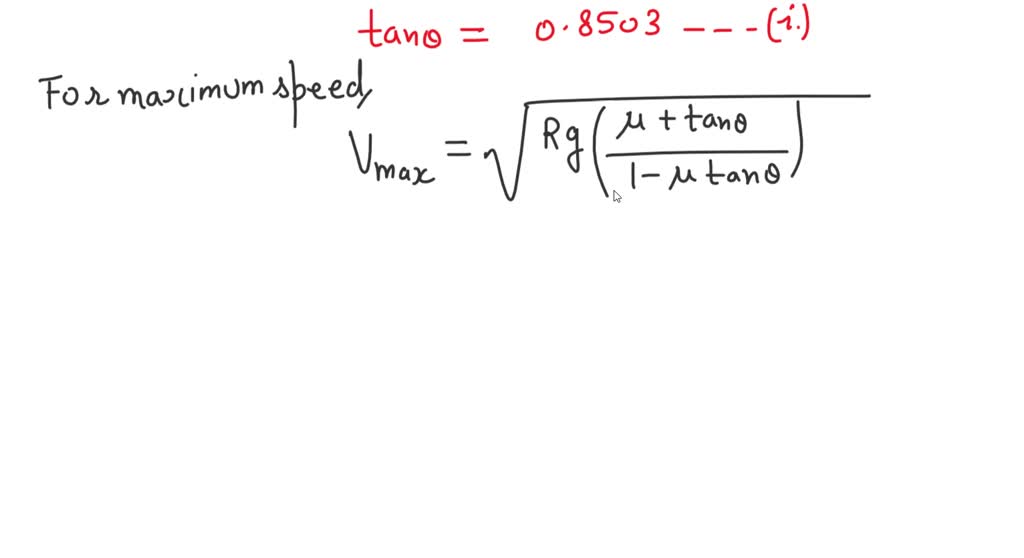 tanθ = 0.8503 ---(i.)
For maximum speed,
Vmax = √(Rg((μ + tanθ)/(1 - μ tanθ)))